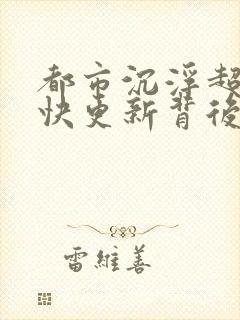 都市沉浮超
快更新背後
雷維善